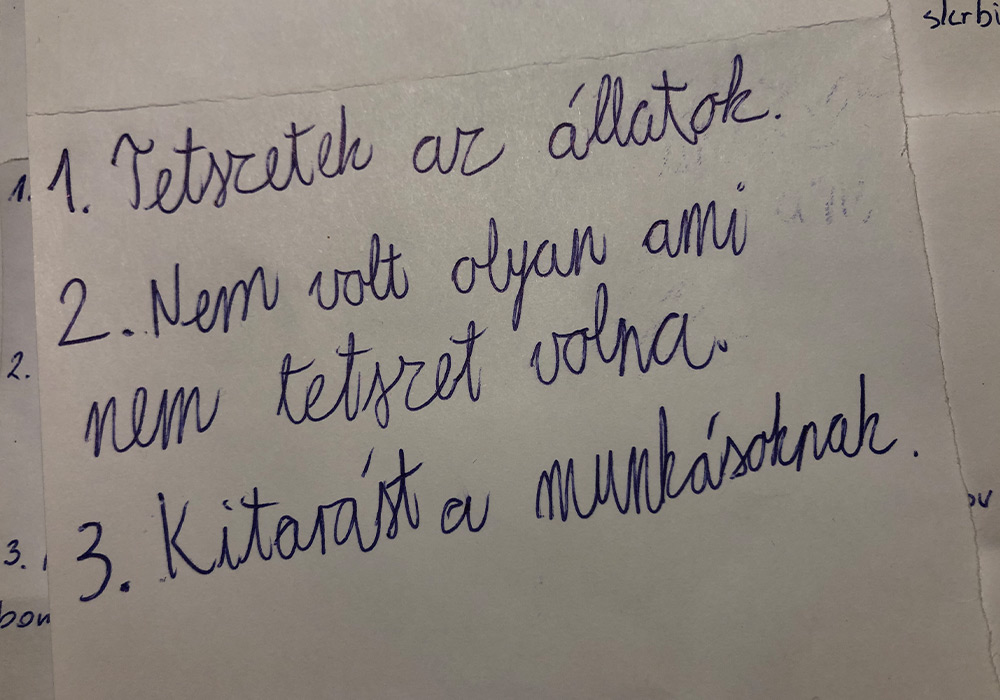 skrbi
1. Tetszetek az állatok.
2. Nem volt olyan ami
nem tetszet volna.
3. Kitarást a munkásoknak.
1.
2.
3.